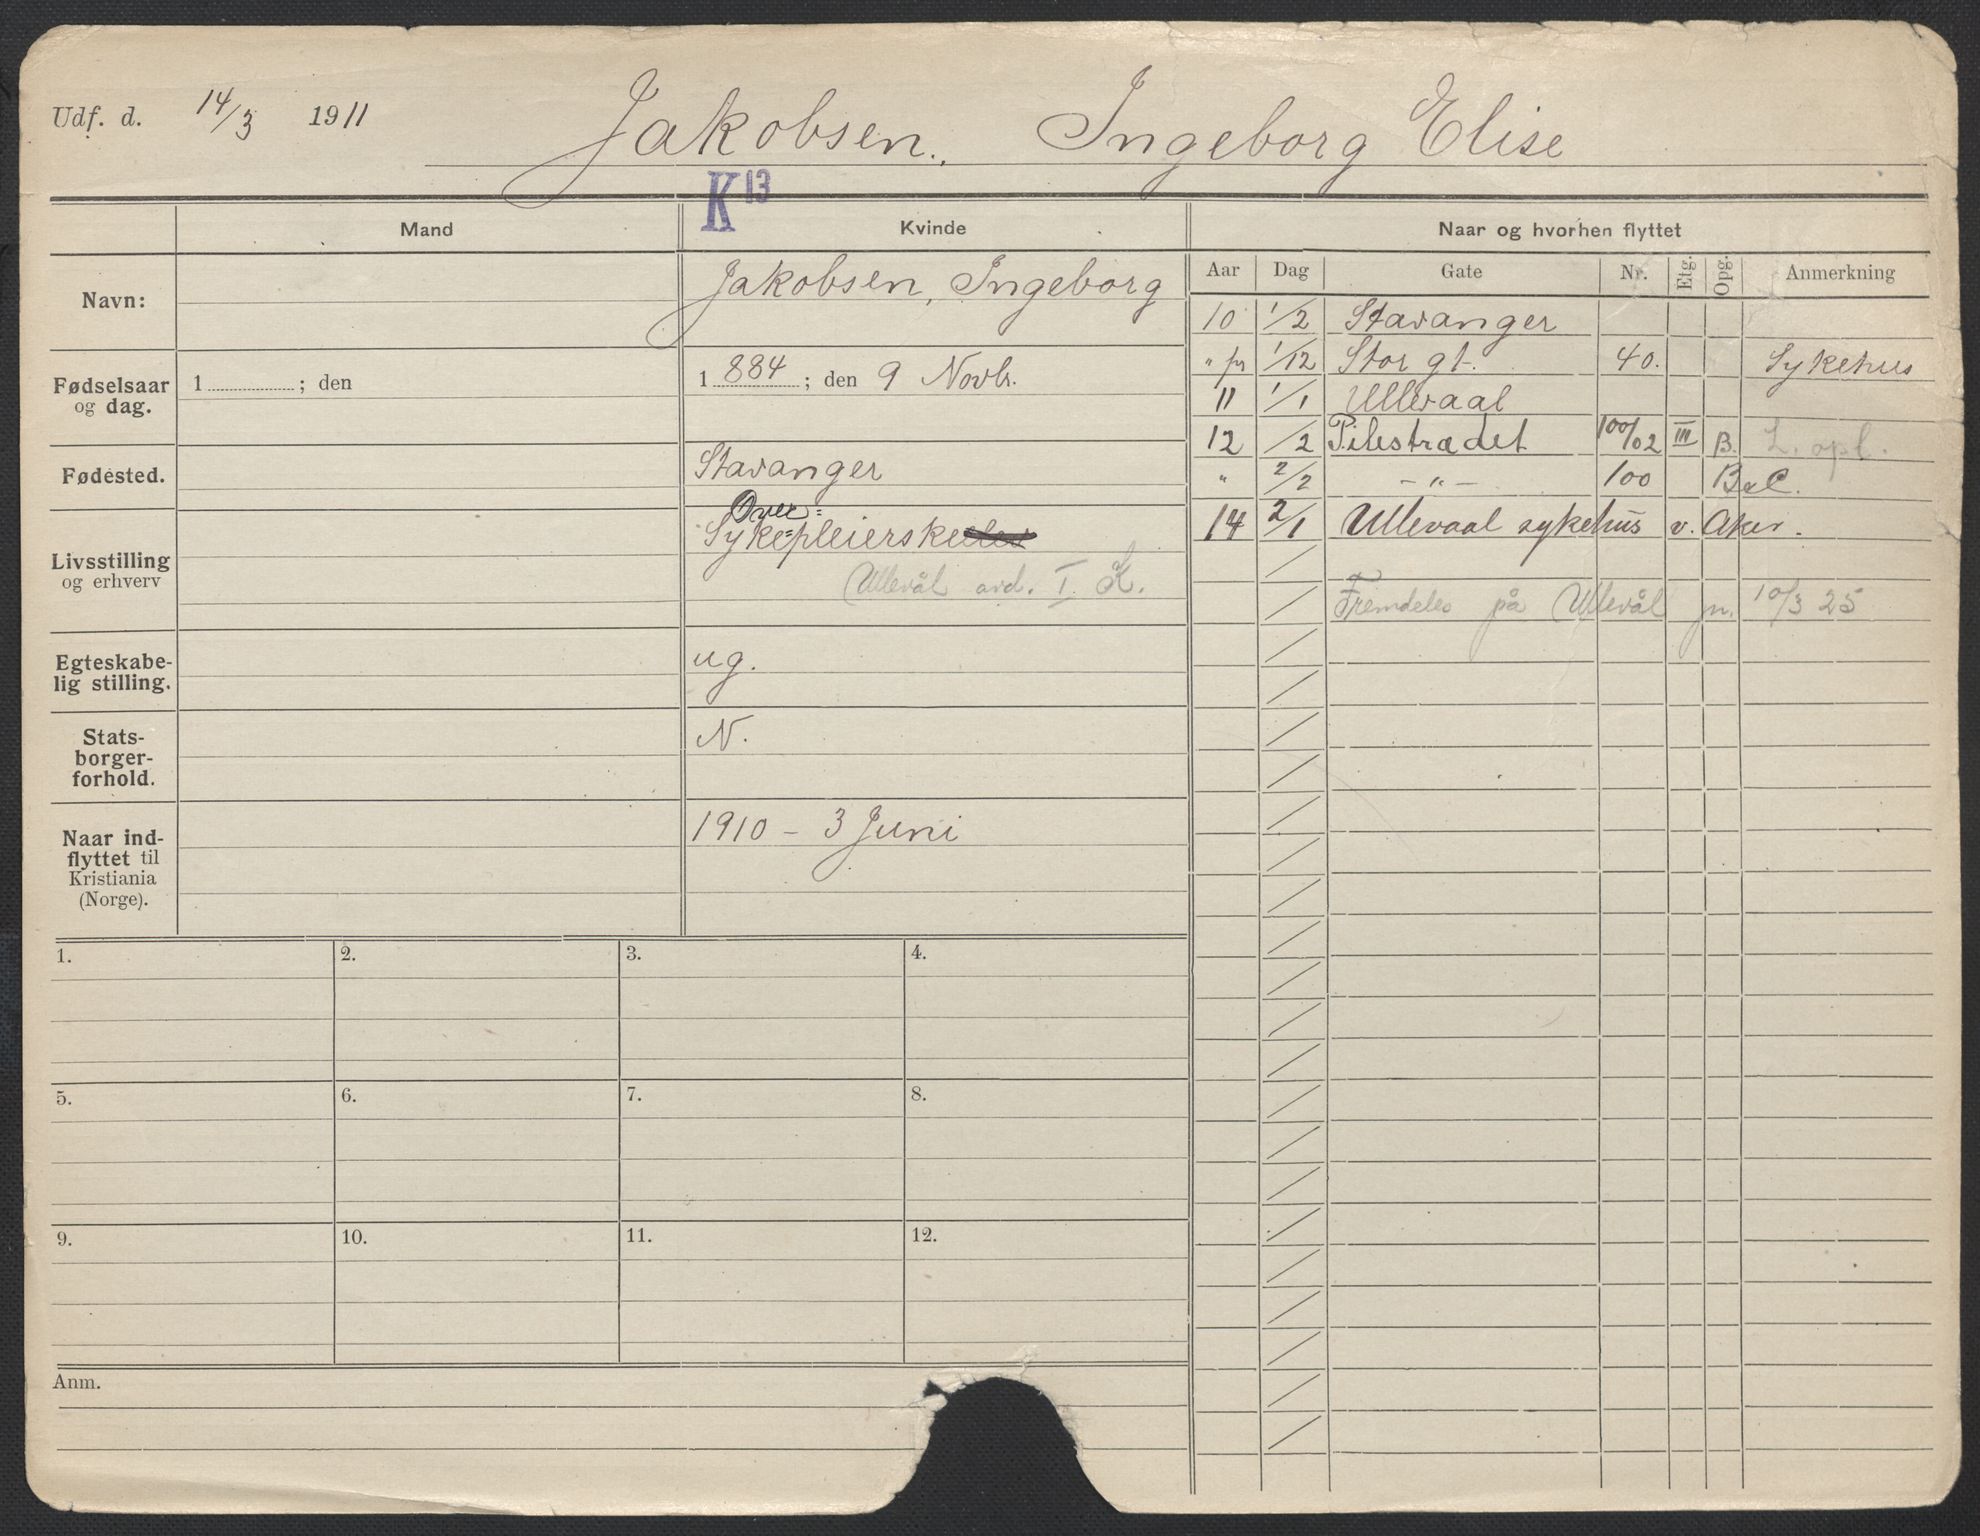 Udf. d. 14/3 1911 Jakobsen, Ingeborg Elise
K13
Mand Kvinde Naar og hvorhen flyttet
Aar Dag Gate Nr. Etg. Opg. Anmerkning
Navn: Jakobsen, Ingeborg
Fødselsaar og dag. 1 ; den 1 884 ; den 9 Novbr.
Fødested. Stavanger
Over=
Livsstilling og erhverv Syke=pleierske
Ullevål avd. I. K.
Egteskabe-
lig stilling. ug.
Stats-
borger-
forhold. N.
Naar ind-
flyttet til
Kristiania
(Norge). 1910 – 3 Juni
10 1/2 Stavanger
" fr 1/12 Stor gt. 40. Sykehus
11 1/1 Ullevaal
12 /2 Pilestrædet 100/102 III B. L. opl.
" 2/2 – " – 100 B&C.
14 2/1 Ullevaal sykehus v. Aker.
Fremdeles på Ullevål 10/3 25
1. 2. 3. 4.
5. 6. 7. 8.
9. 10. 11. 12.
Anm.